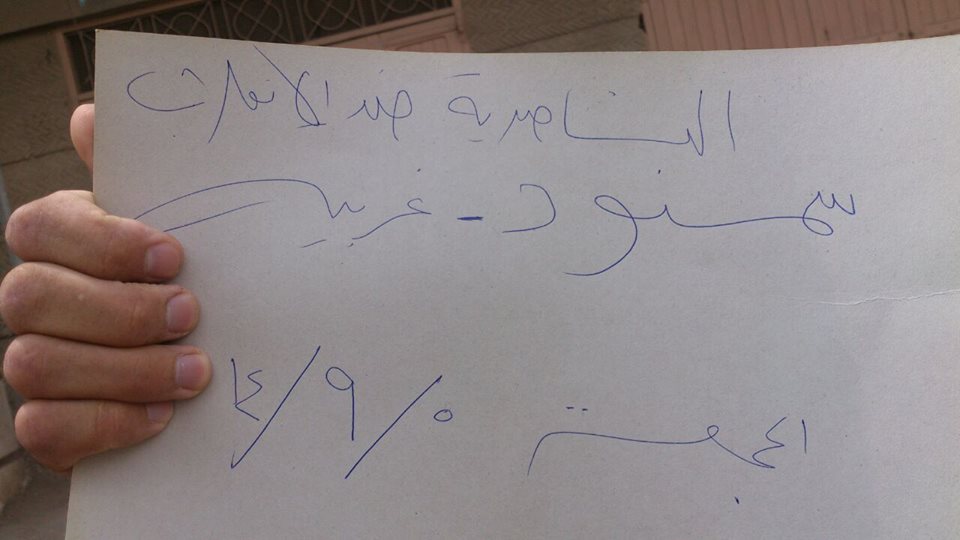 الناصرية ضد الانقلاب
سمنود - غربية
الجمعة ٥/٩/١٤